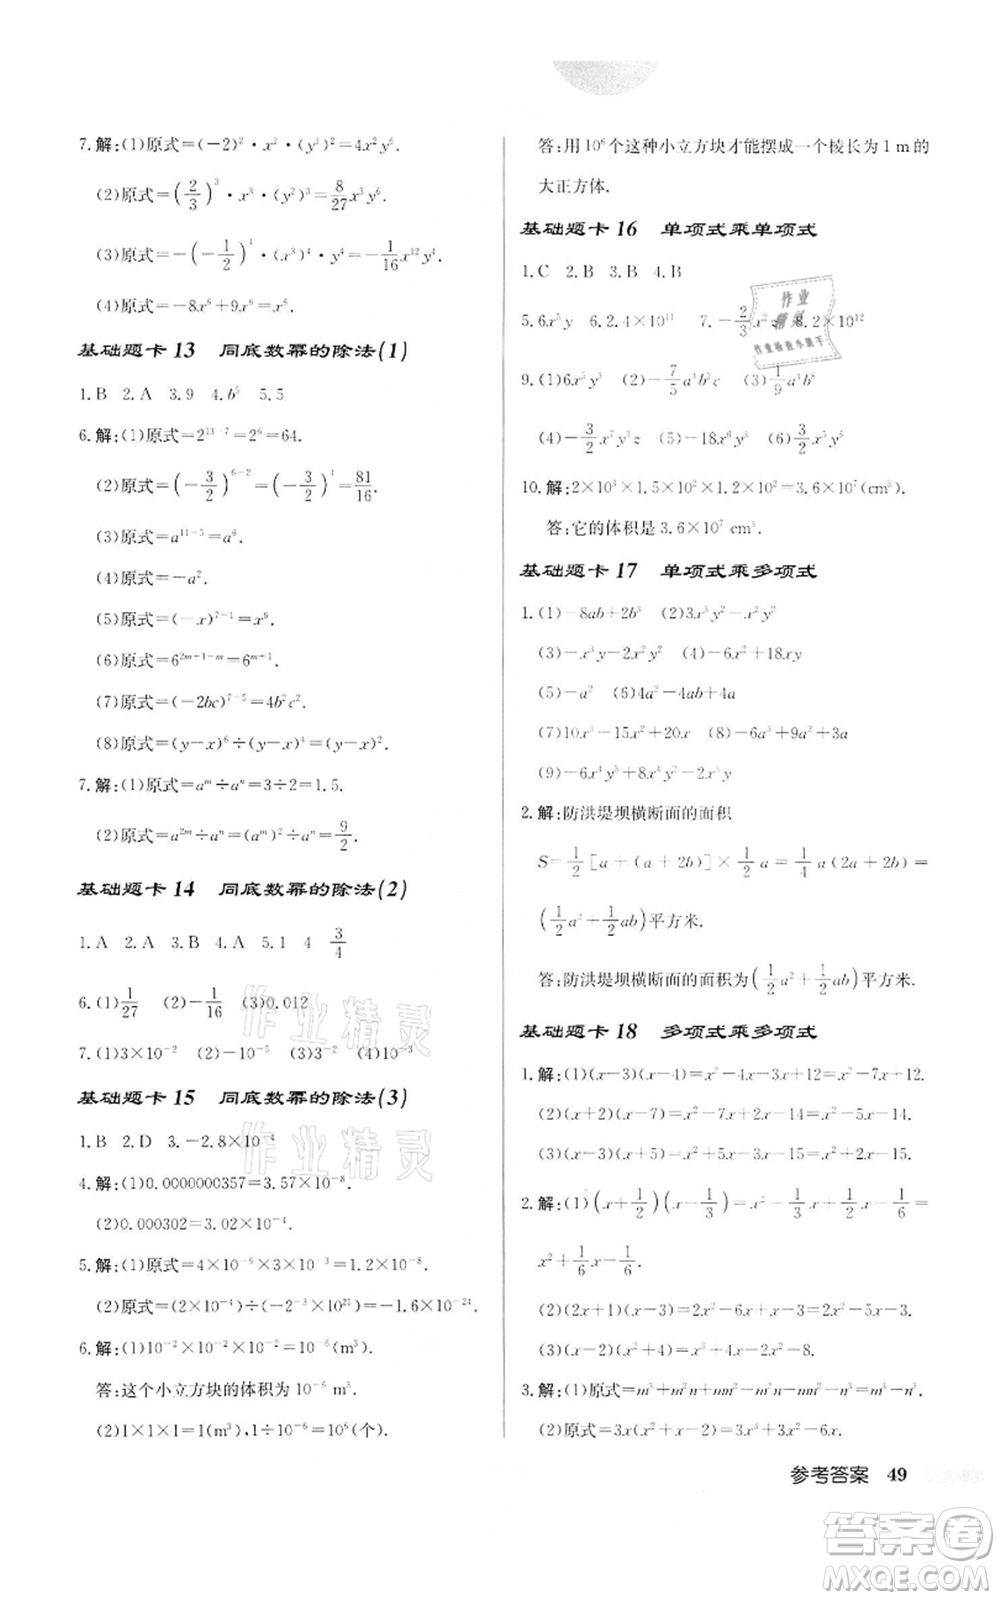 7.解:(1)原式=(-2)²·x²·(y³)²=4x²y⁶.
(2)原式=(2/3)³·x³·(y²)³=8/27x³y⁶.
(3)原式=-(-1/2)⁴·(x³)⁴·y⁴=-1/16x¹²y⁴.
(4)原式=-8x⁶+9x⁶=x⁶.
基础题卡13 同底数幂的除法(1)
1.B 2.A 3.9 4.b⁵ 5.5
6.解:(1)原式=2¹³⁻⁷=2⁶=64.
(2)原式=(-3/2)⁶⁻²=(-3/2)⁴=81/16.
(3)原式=a¹¹⁻⁵=a⁶.
(4)原式=-a².
(5)原式=(-x)⁷⁻¹=x⁶.
(6)原式=6²ᵐ⁺¹⁻ᵐ=6ᵐ⁺¹.
(7)原式=(-2bc)⁷⁻⁵=4b²c².
(8)原式=(y-x)⁶÷(y-x)⁴=(y-x)².
7.解:(1)原式=aᵐ÷aⁿ=3÷2=1.5.
(2)原式=a²ᵐ÷aⁿ=(aᵐ)²÷aⁿ=9/2.
基础题卡14 同底数幂的除法(2)
1.A 2.A 3.B 4.A 5.1 4 3/4
6.(1)1/27 (2)-1/16 (3)0.012
7.(1)3×10⁻² (2)-10⁻⁵ (3)10⁻⁵ (4)10⁻³
基础题卡15 同底数幂的除法(3)
1.B 2.D 3.-2.8×10⁻⁹
4.解:(1)0.0000000357=3.57×10⁻⁸.
(2)0.000302=3.02×10⁻⁴.
5.解:(1)原式=4×10⁻⁶×3×10⁻³=1.2×10⁻⁸.
(2)原式=(2×10⁻⁴)÷(-2⁻³×10²¹)=-1.6×10⁻²⁴.
6.解:(1)10⁻²×10⁻²×10⁻²=10⁻⁶(m³).
答:这个小立方块的体积为10⁻⁶ m³.
(2)1×1×1=1(m³),1÷10⁻⁶=10⁶(个).
答:用10⁶个这种小立方块才能摆成一个棱长为1 m的
大正方体.
基础题卡16 单项式乘单项式
1.C 2.B 3.B 4.B
5.6x⁵y 6.2.4×10¹¹ 7.-2/3x² 8.2×10¹²
9.(1)6x⁵y³ (2)-7/5a⁴b²c (3)1/9a³b
(4)-3/2x²y³z (5)-18x⁶y³ (6)3/2x⁵y⁶
10.解:2×10³×1.5×10²×1.2×10²=3.6×10⁷(cm³).
答:它的体积是3.6×10⁷ cm³.
基础题卡17 单项式乘多项式
1.(1)-8ab+2b³ (2)3x³y²-x²y²
(3)-x³y-x²y² (4)-6x²+18xy
(5)-a² (6)4a²-4ab+4a
(7)10x³-15x²+20x (8)-6a³+9a²+3a
(9)-6x³+4x²-2x
2.解:防洪堤坝横断面的面积
S=1/2[a+(a+2b)]×1/2a=1/4a(2a+2b)=
(1/2a²+1/2ab)平方米.
答:防洪堤坝横断面的面积为(1/2a²+1/2ab)平方米.
基础题卡18 多项式乘多项式
1.解:(1)(x-3)(x-4)=x²-4x-3x+12=x²-7x+12.
(2)(x+2)(x-7)=x²-7x+2x-14=x²-5x-14.
(3)(x-5)(x+3)=x²+3x-5x-15=x²-2x-15.
2.解:(1)(x+1/2)(x-1/3)=x²-1/3x+1/2x-1/6=
x²+1/6x-1/6.
(2)(2x+1)(x-3)=2x²-6x+x-3=2x²-5x-3.
(3)(x-2)(x+4)=x²+4x-2x-8=x²+2x-8.
3.解:(1)原式=m³+m²n+mn²-m²n-mn²-n³=m³-n³.
(2)原式=3x(x²+4x+4)-3x(x²-x-12)=3x³+12x²
参考答案 49
作业精灵
作业检查小能手
作业精灵
作业精灵
答案卷
MXQE.COM